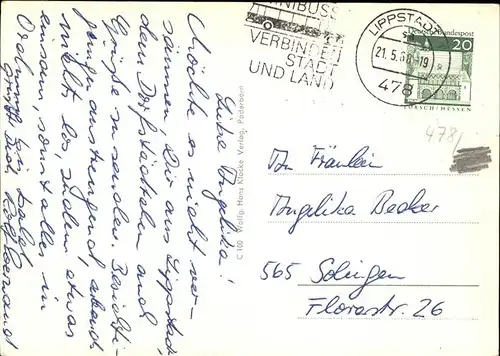 OMNIBUSSE
VERBINDEN
STADT
UND LAND
LIPPSTADT
21.5.68-19
478
Deutsche Bundespost
20
LORSCH/HESSEN
478/
Liebe Angelika!
Möchte es nicht ver-
säumen Dir aus Lippstadt,
dem Dorfstädtchen
Grüße zu senden. Besichti-
gungen anstrengend, abends
nichts los, zudem etwas
einsam, sonst alles in
Ordnung. Bis
grüßt Dich
C 100 Wolfg. Hans Klocke Verlag, Paderborn
An Fräulein
Angelika Becker
565 Solingen
Florastr. 26